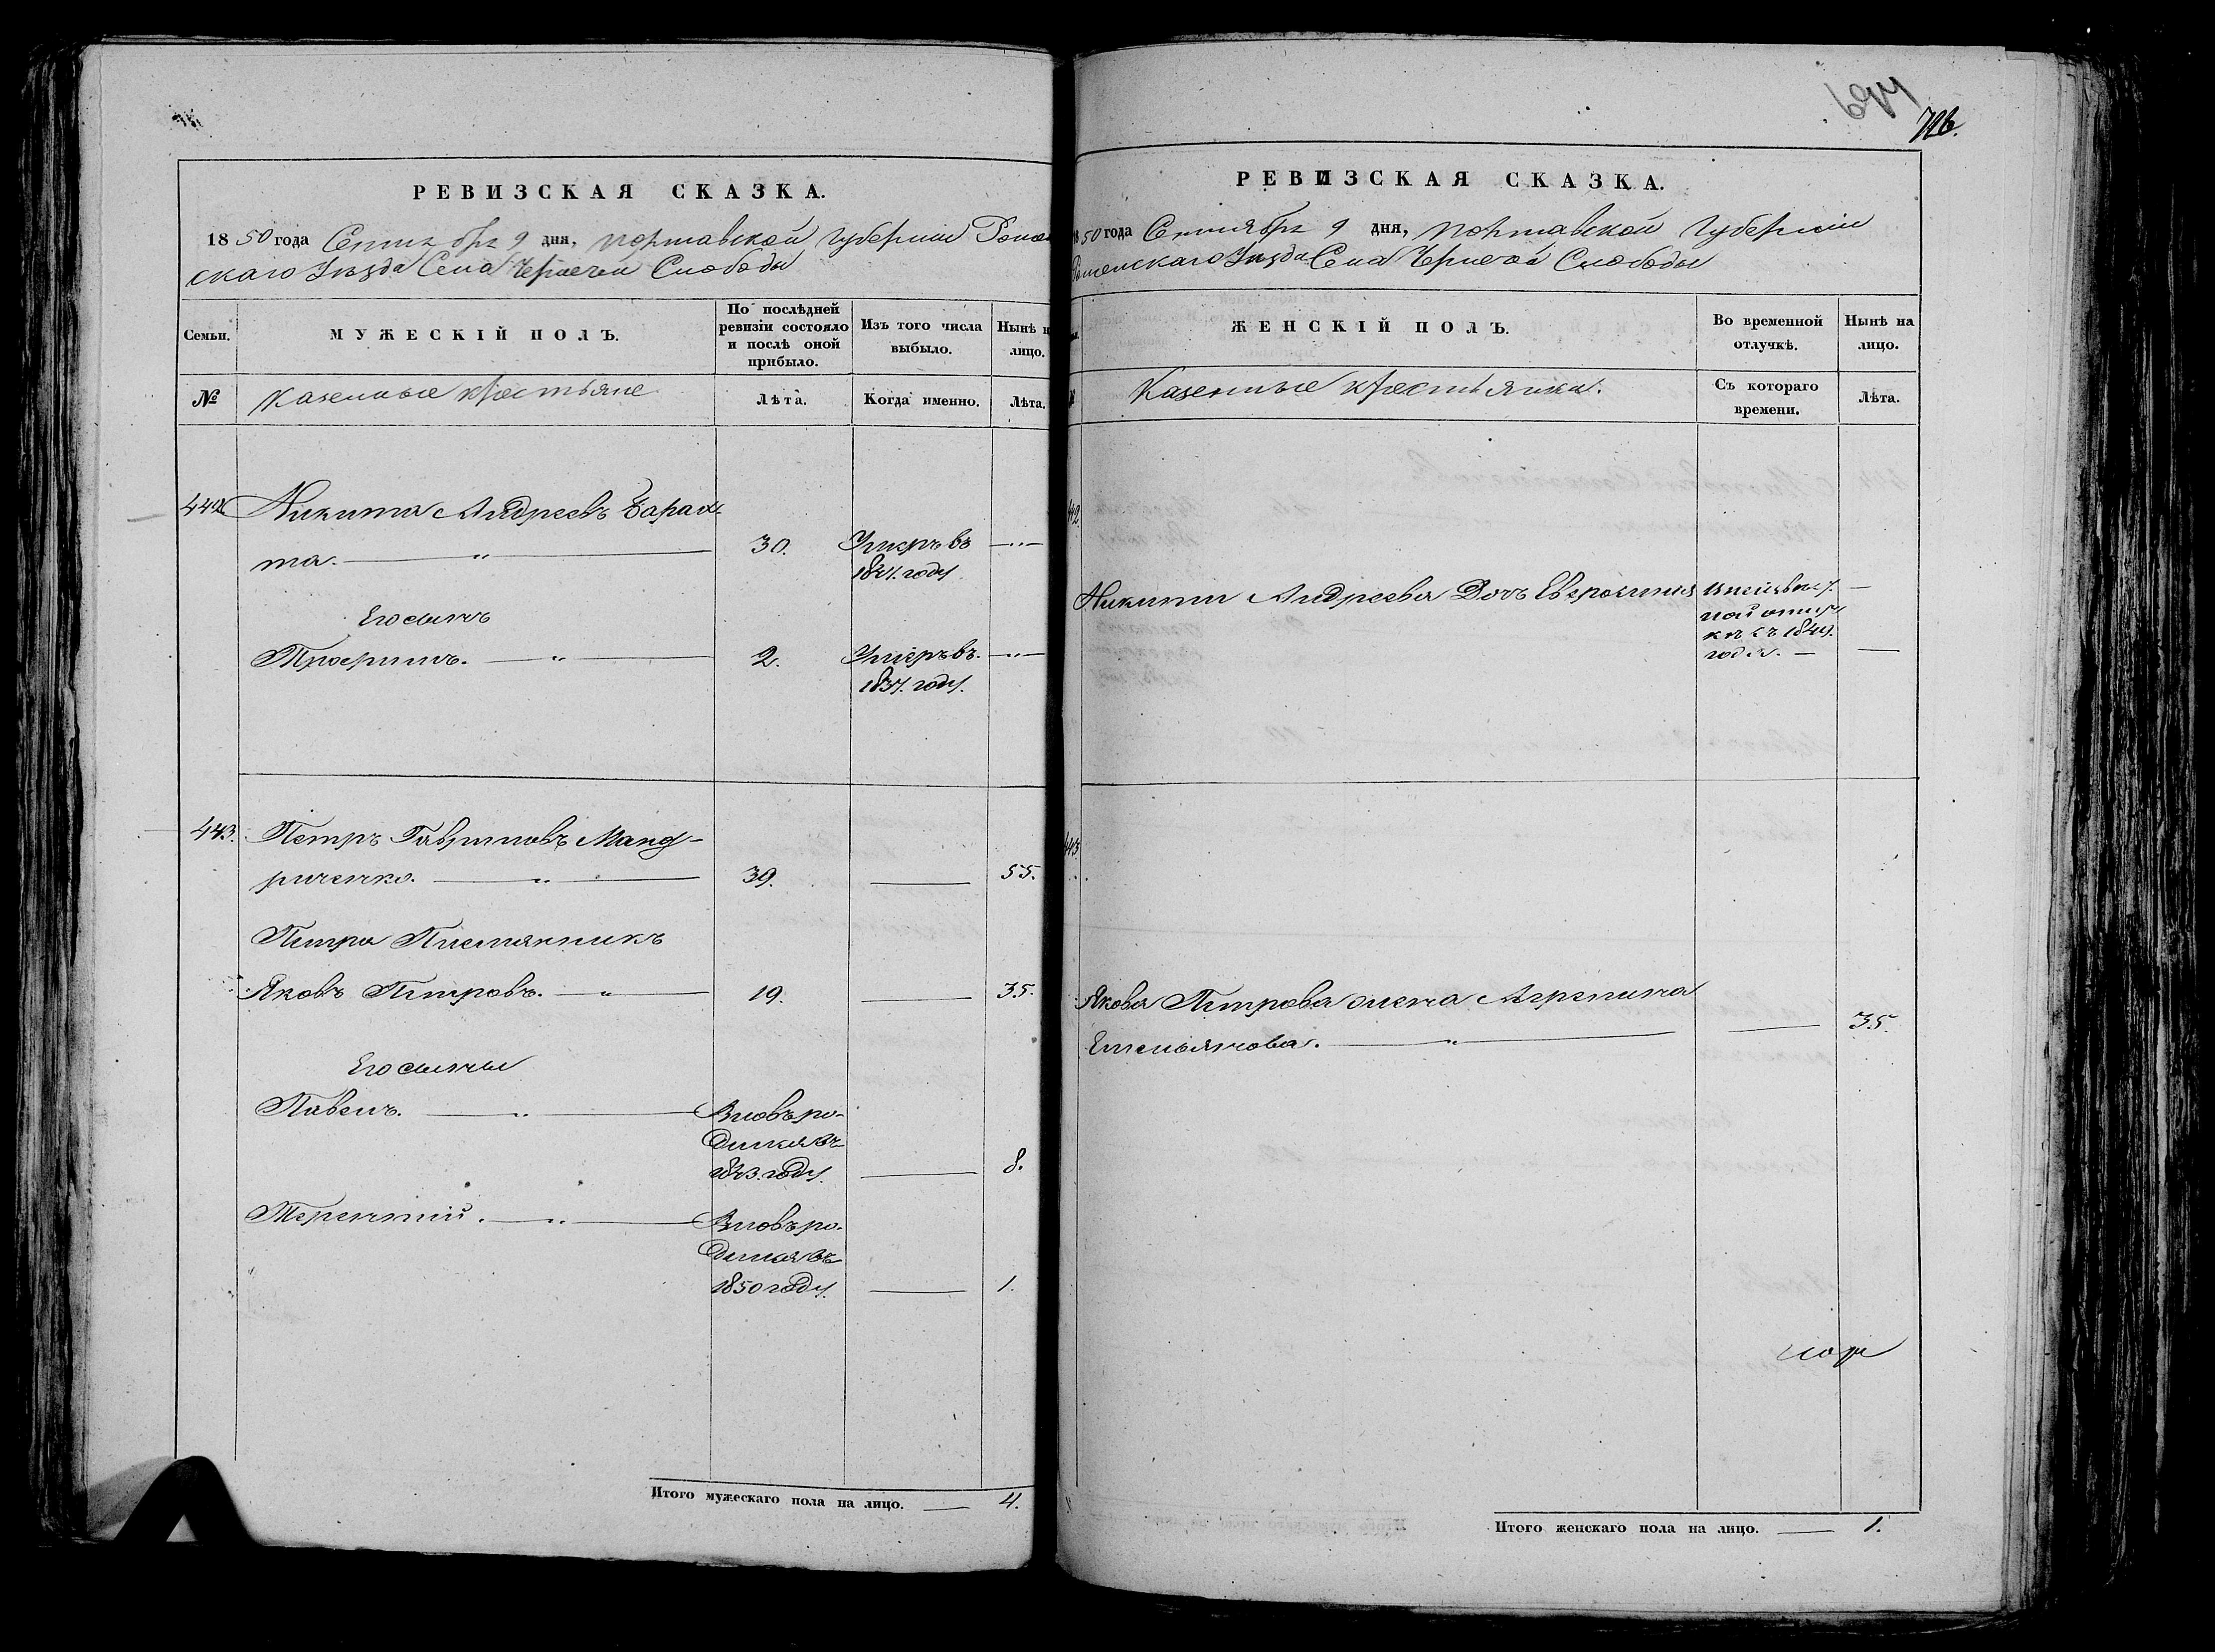 РЕВИЗСКАЯ СКАЗКА.
1850 года Сентября 9 дня, Полтавской Губернии Ромен
скаго Уезда Села Чернечей Слободы
Семьи.
МУЖЕСКІЙ ПОЛЪ.
По послѣдней ревизіи состояло и послѣ оной прибыло.
Изъ того числа выбыло.
Нынѣ на лицо.
№
Казенные крестьяне
Лѣта.
Когда именно.
Лѣта.
442
Никита Андреевъ Барах-
та. — " — 30. Умеръ въ — " —
году.
Его сынъ
Трофимъ. — " — 2. Умеръ въ. — " —
1837. году.
443. Петръ Гавриловъ Манд-
риченко. — " — 39. — 55.
Петра Племянникъ
Яковъ Петровъ. — " — 19. — 35.
Его сыны
Павелъ. — " — Вновь ро-
дился въ
1843. году. — 8.
Терентий. — " — Вновь ро-
дился въ
1850 году. — 1.
Итого мужескаго пола на лицо. — 4.
726.
РЕВИЗСКАЯ СКАЗКА.
1850 года Сентября 9 дня, Полтавской Губернии
Роменскаго Уезда Села Чернечей Слободы
ЖЕНСКІЙ ПОЛЪ.
Во временной отлучкѣ.
Нынѣ на лицо.
Казенные крестьянки.
Съ котораго времени.
Лѣта.
442.
Никиты Андреева Дочь Евфросиния
ной отлуч
ке съ
года. — —
443
Якова Петрова жена Агрепина
Емельянова. — " — — 35.
Итого женскаго пола на лицо. — 1.